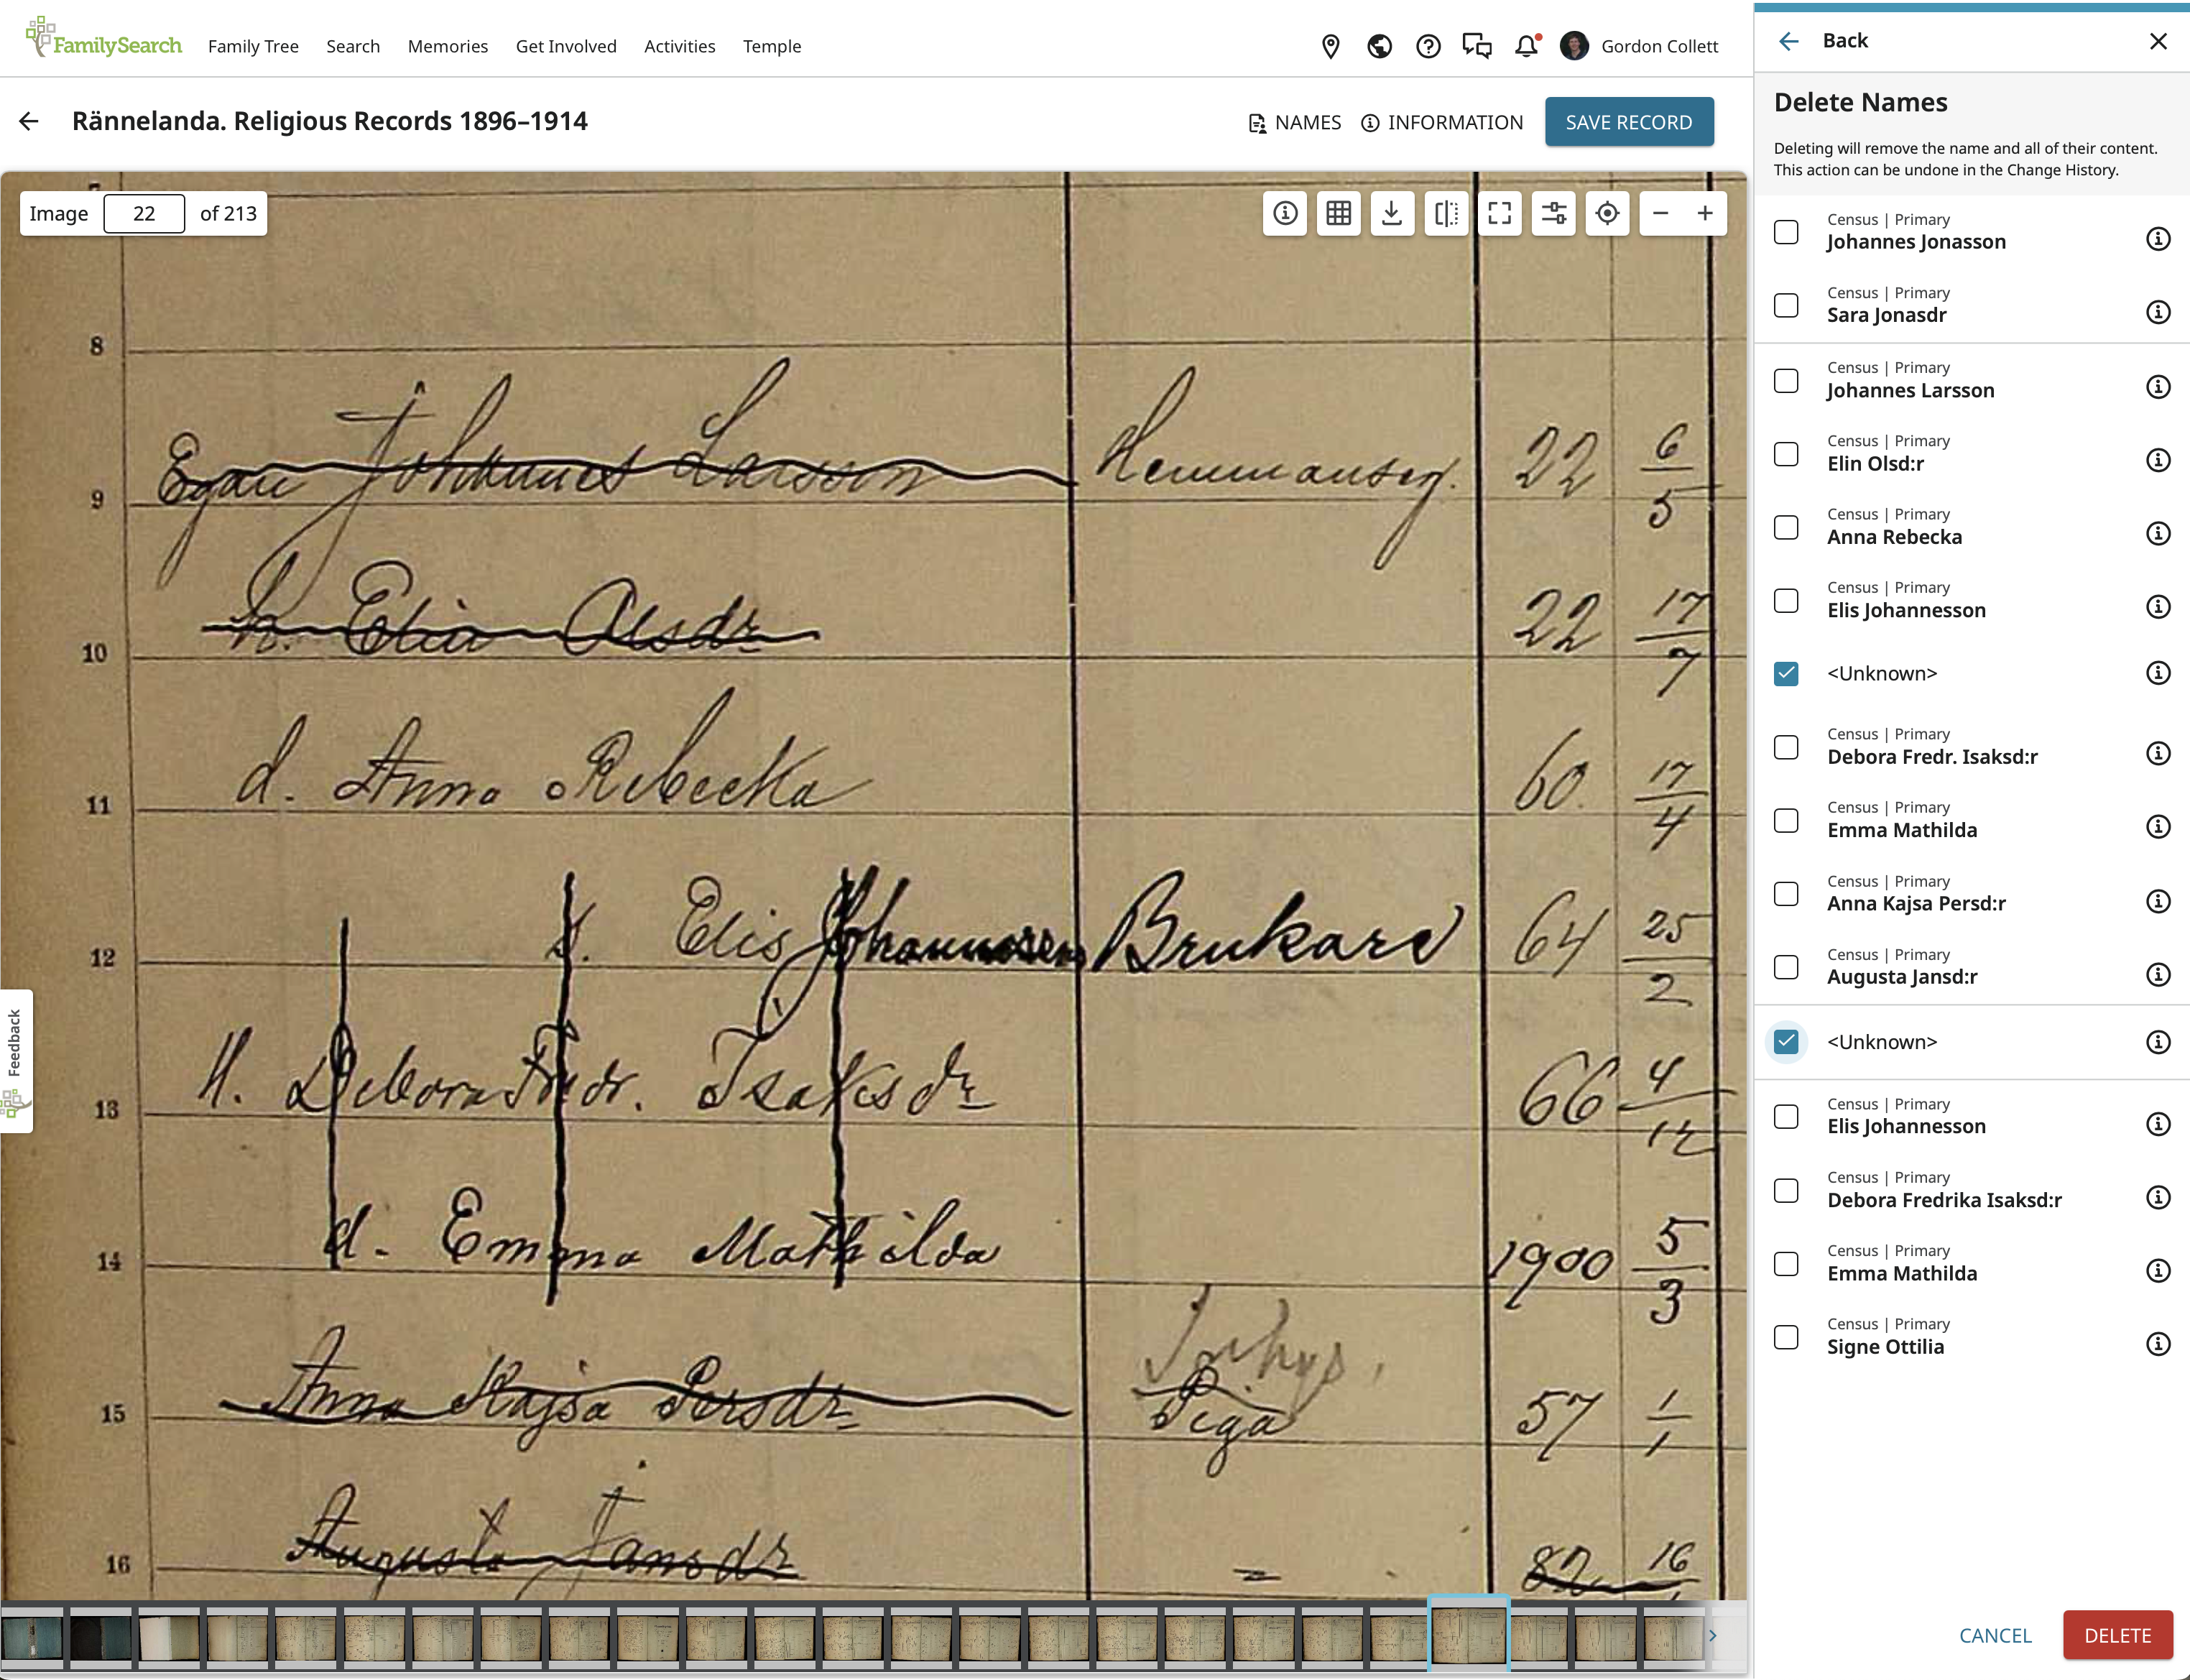 FamilySearch
Family Tree
Search
Memories
Get Involved
Activities
Temple
Gordon Collett
Rännelanda. Religious Records 1896–1914
NAMES
INFORMATION
SAVE RECORD
Image 22 of 213
8
Egau Johannes Larsson Hemmanseg. 22 6/5
9
h. Elin Olsdr 22 17/7
10
d. Anna Rebecka 60. 17/4
11
S. Elis Johannesson Brukare 64 25/2
12
H. Debora Fredr. Isaksdr 66 4/12
13
d. Emma Mathilda 1900 5/3
14
Inhys.
Anna Kajsa Persdr Piga 57 1/1
15
Augusta Jansdr = 82 16
16
Feedback
Back
Delete Names
Deleting will remove the name and all of their content.
This action can be undone in the Change History.
Census | Primary
Johannes Jonasson
Census | Primary
Sara Jonasdr
Census | Primary
Johannes Larsson
Census | Primary
Elin Olsd:r
Census | Primary
Anna Rebecka
Census | Primary
Elis Johannesson
<Unknown>
Census | Primary
Debora Fredr. Isaksd:r
Census | Primary
Emma Mathilda
Census | Primary
Anna Kajsa Persd:r
Census | Primary
Augusta Jansd:r
<Unknown>
Census | Primary
Elis Johannesson
Census | Primary
Debora Fredrika Isaksd:r
Census | Primary
Emma Mathilda
Census | Primary
Signe Ottilia
CANCEL
DELETE